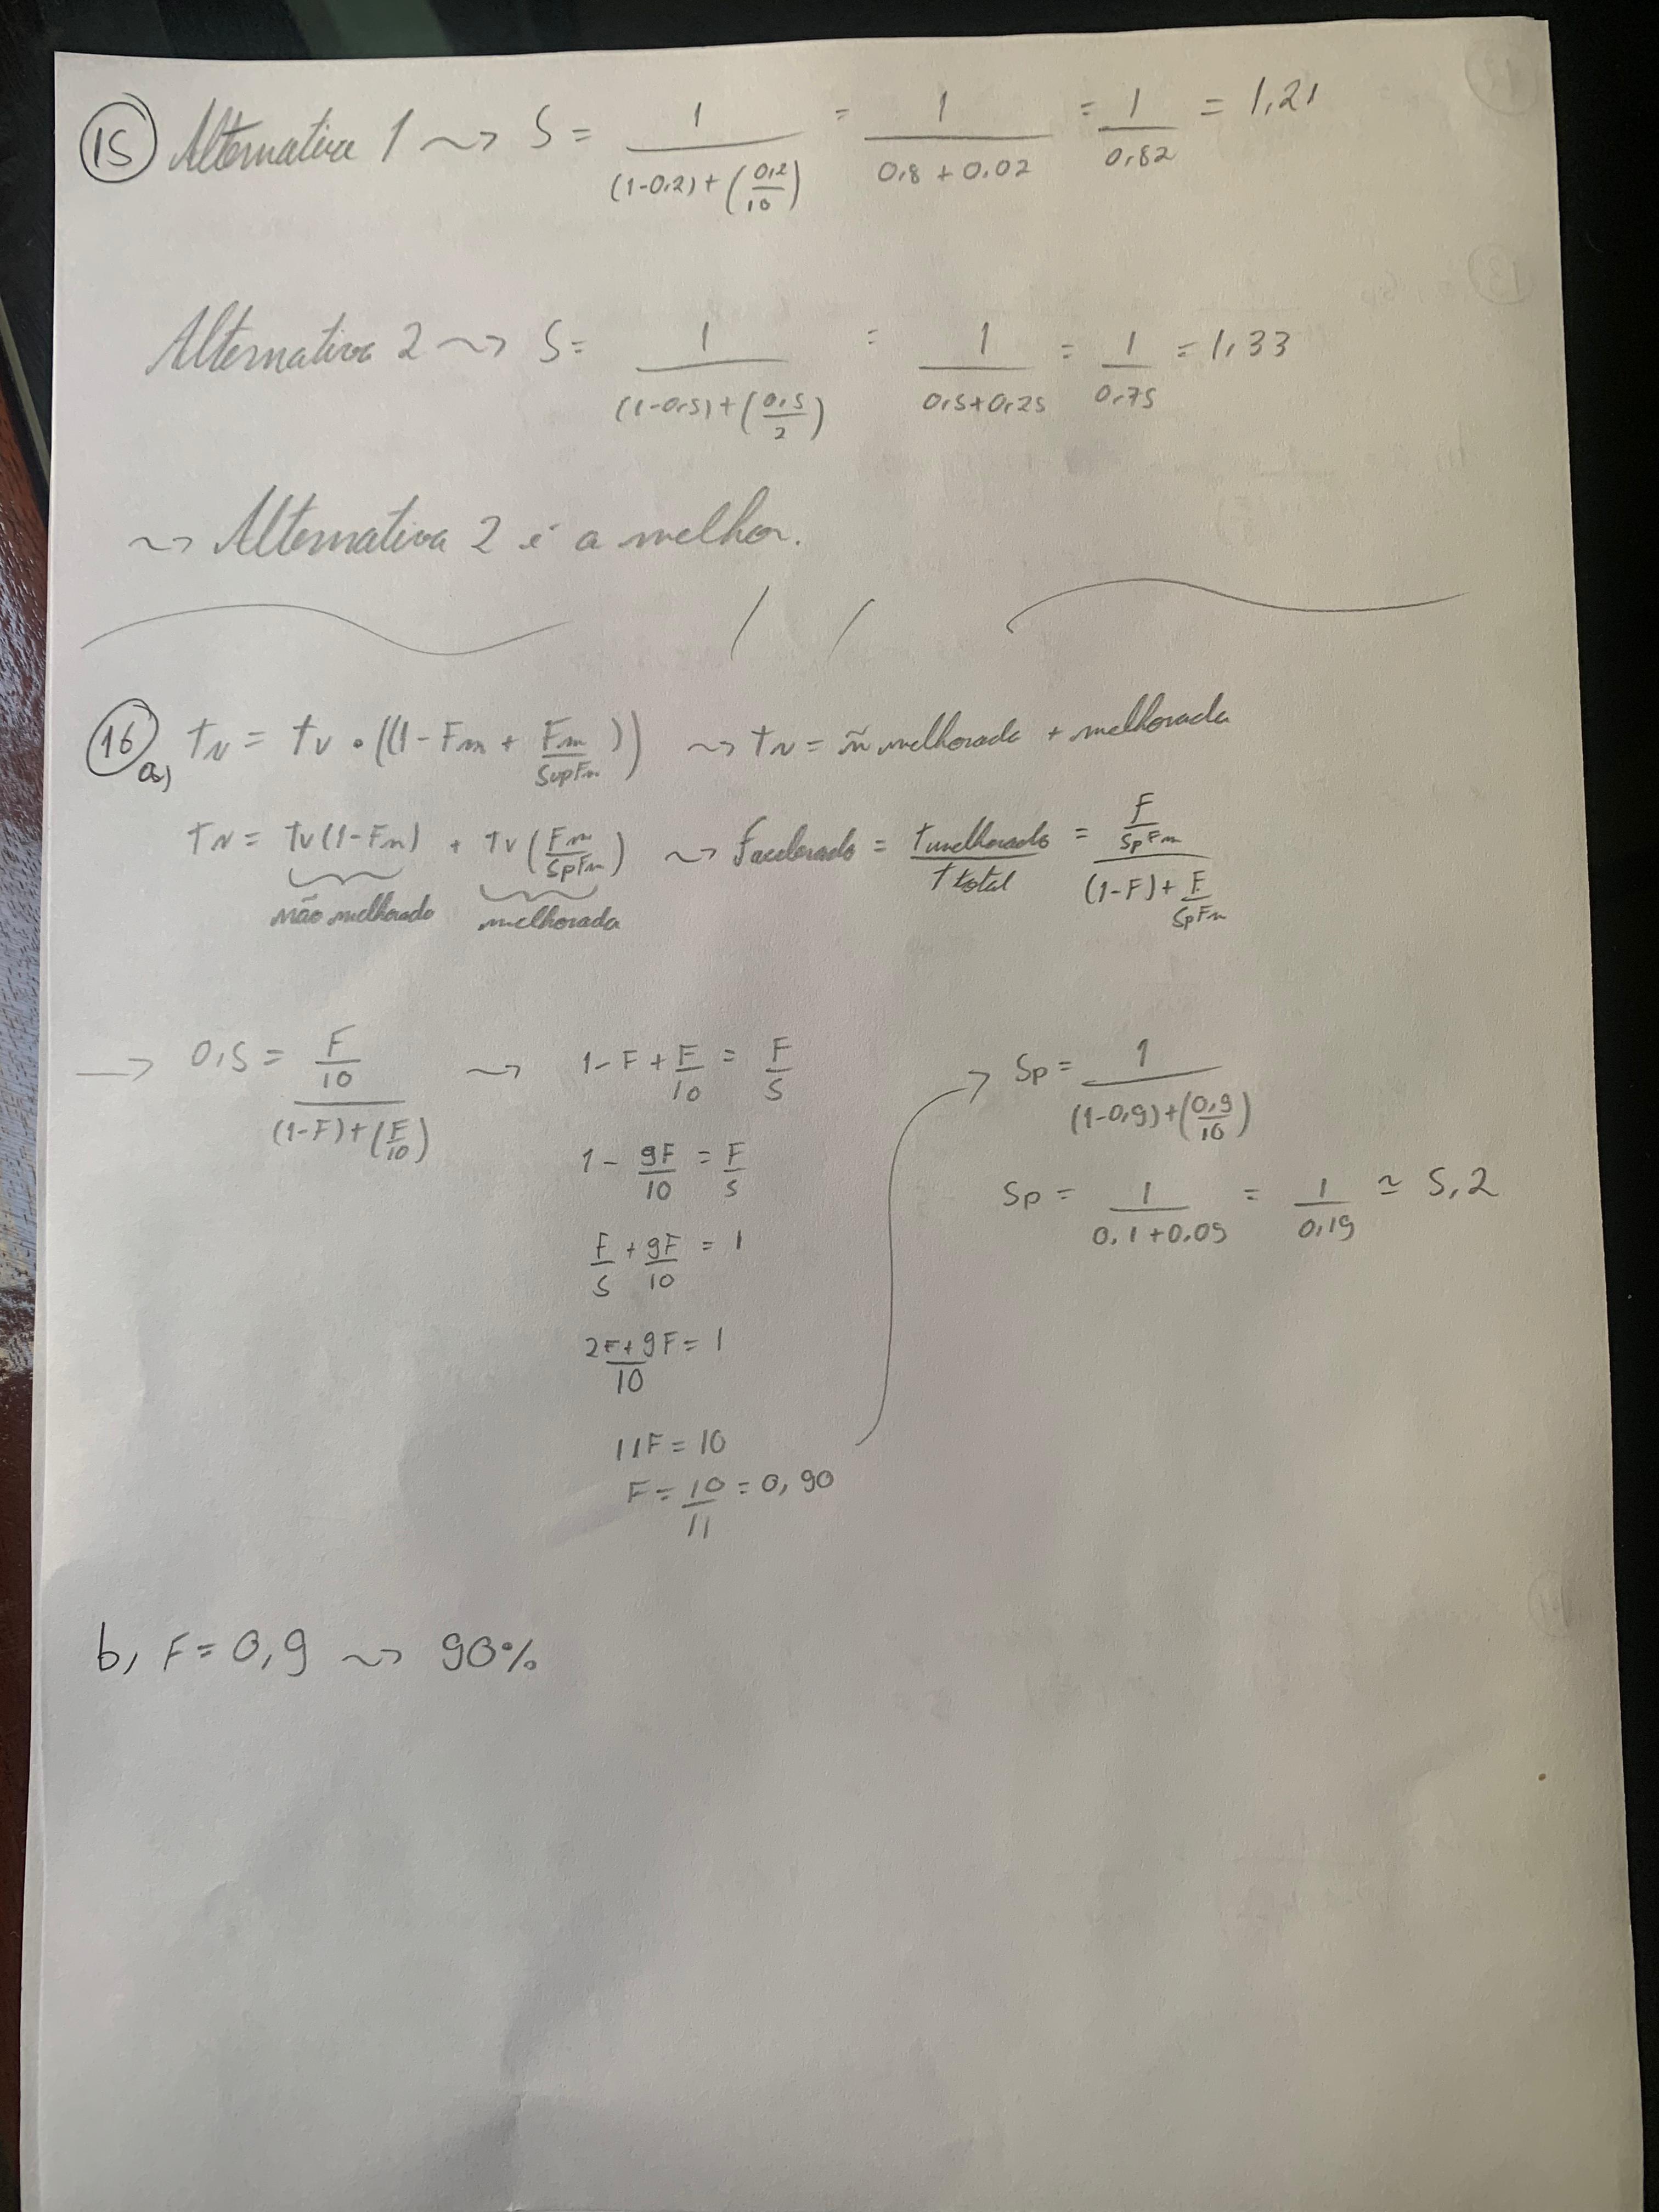 15 Alternativa 1 ~> S = 1/((1-0,2)+(0,2/10)) = 1/(0,8+0,02) = 1/0,82 = 1,21
Alternativa 2 ~> S = 1/((1-0,5)+(0,5/2)) = 1/(0,5+0,25) = 1/0,75 = 1,33
~> Alternativa 2 é a melhor.
16 a) TN = TV • ((1-Fm + Fm/SupFm)) ~> TN = ñ melhorada + melhorada
TN = TV(1-Fm) + TV(Fm/SpFm) ~> Facelerado = Tmelhorado/Ttotal = (F/SpFm)/((1-F)+F/SpFm)
não melhorado melhorada
→ 0,5 = (F/10)/((1-F)+(F/10)) ~> 1-F+F/10 = F/5 → Sp = 1/((1-0,9)+(0,9/10))
1 - 9F/10 = F/5 Sp = 1/(0,1+0,09) = 1/0,19 ≃ 5,2
F/5 + 9F/10 = 1
(2F+9F)/10 = 1
11F = 10
F = 10/11 = 0,90
b, F = 0,9 ~> 90%